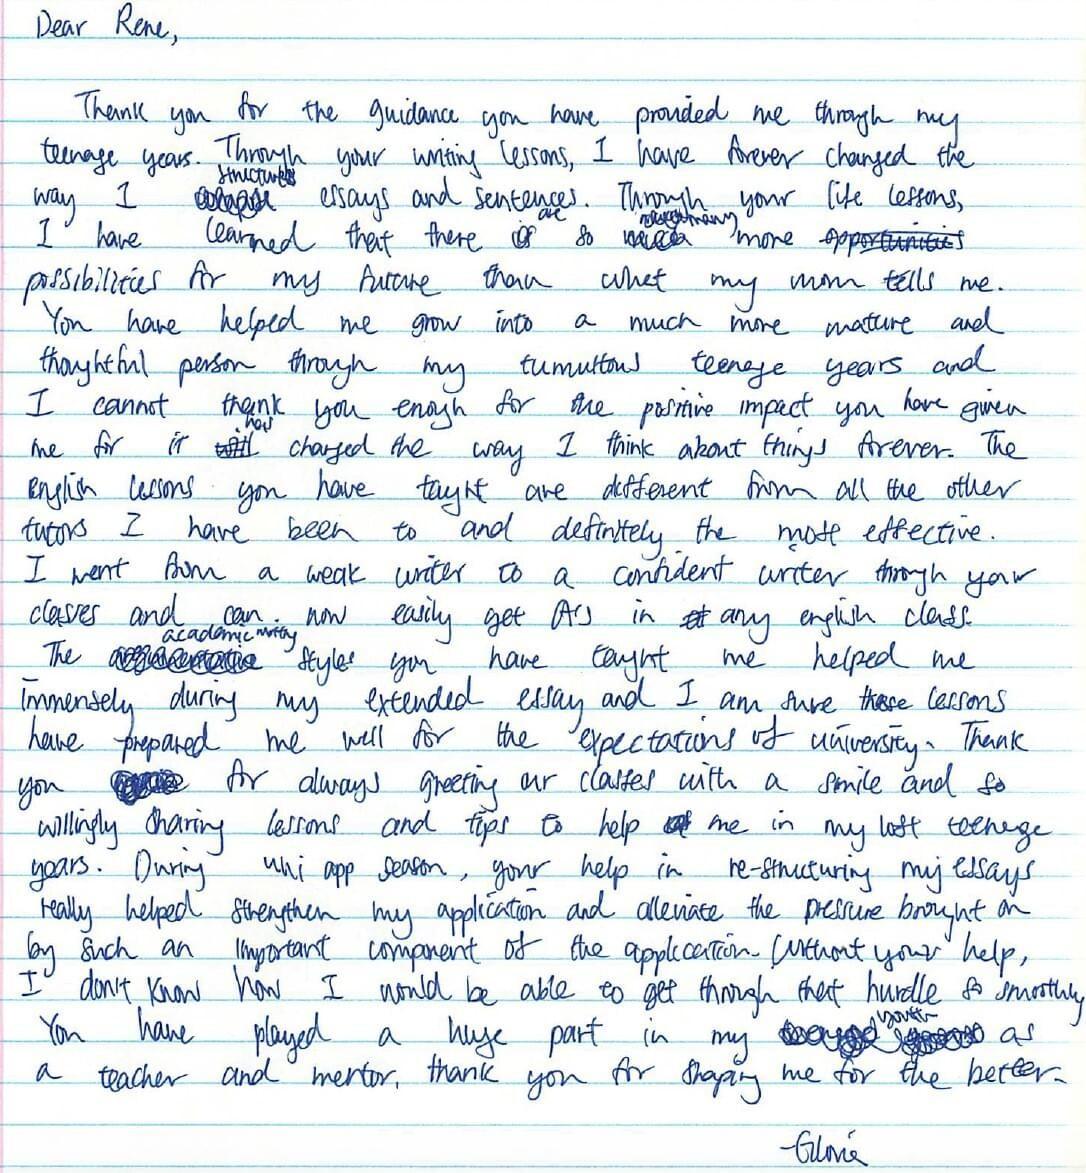 Dear Rene,
Thank you for the guidance you have provided me through my
teenage years. Through your writing lessons, I have forever changed the
way I structure essays and sentences. Through your life lessons,
I have learned that there are so many more opportunities
possibilities for my future than what my mom tells me.
You have helped me grow into a much more mature and
thoughtful person through my tumultous teenage years and
I cannot thank you enogh for the positive impact you have given
me for it has changed the way I think about things forever. The
English lessons you have taught are different from all the other
tutors I have been to and definitely the most effective.
I went from a weak writer to a confident writer through your
classes and can now easily get A's in any english class.
The academic writing styles you have taught me helped me
immensely during my extended essay and I am sure these lessons
have prepared me well for the expectations of university. Thank
you for always greeting our classes with a smile and so
willingly sharing lessons and tips to help me in my last teenage
years. During uni app season, your help in re-structuring my essays
really helped strengthen my application and alleviate the pressure brought on
by such an important component of the application. Without your help,
I don't know how I would be able to get through that hurdle so smoothly
You have played a huge part in my youth as
a teacher and mentor, thank you for shaping me for the better.
-Gloria